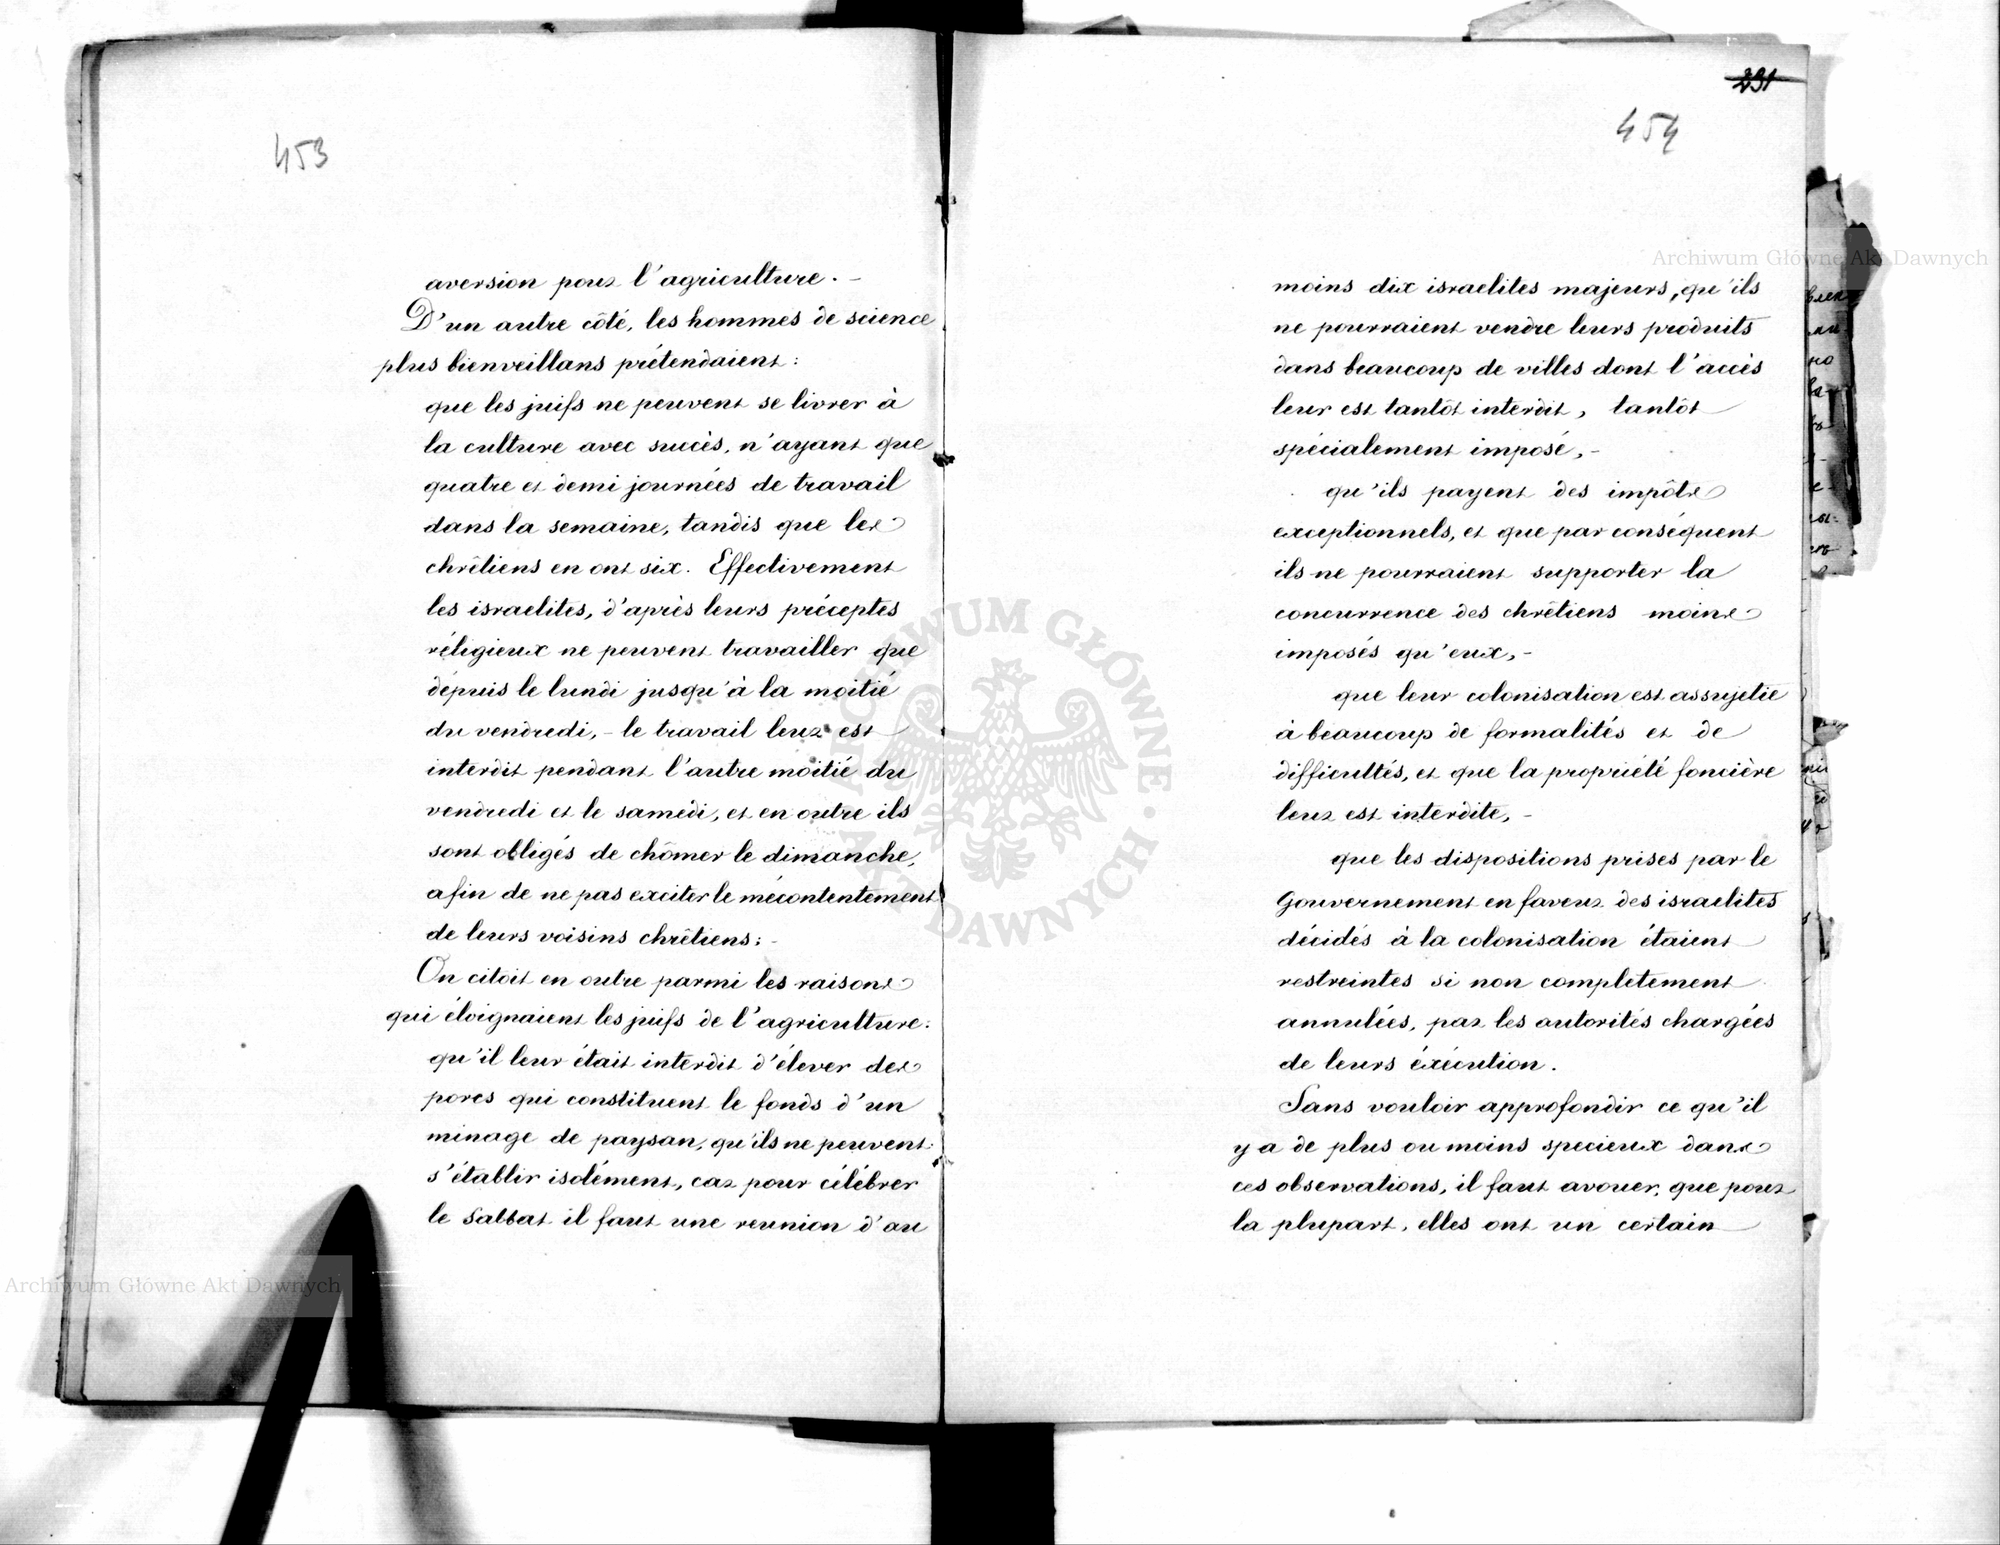 453
aversion pour l'agriculture. –
D'un autre côté, les hommes de science
plus bienveillans prétendaient:
que les juifs ne peuvent se livrer à
la culture avec succès, n'ayant que
quatre et demi journées de travail
dans la semaine, tandis que les
chrêtiens en ont six. Effectivement
les israelites, d'après leurs préceptes
réligieux ne peuvent travailler que
dépuis le lundi jusqu'à la moitié
du vendredi, – le travail leur est
interdit pendant l'autre moitié du
vendredi et le samedi, et en outre ils
sont obligés de chômer le dimanche,
afin de ne pas exciter le mécontentement
de leurs voisins chrêtiens; –
On citoit en outre parmi les raisons
qui éloignaient les juifs de l'agriculture:
qu'il leur était interdit d'élever des
porcs qui constituent le fonds d'un
minage de paysan, qu'ils ne peuvent
s'établir isolément, car pour célébrer
le Sabbat il faut une reunion d'au
231
454
moins dix israelites majeurs, qu'ils
ne pourraient vendre leurs produits
dans beaucoup de villes dont l'accès
leur est tantôt interdit, tantôt
spécialement imposé, –
qu'ils payent des impôts
exceptionnels, et que par conséquent
ils ne pourraient supporter la
concurrence des chrêtiens moins
imposés qu'eux, –
que leur colonisation est assujetie
à beaucoup de formalités et de
difficultés, et que la propriété foncière
leur est interdite, –
que les dispositions prises par le
Gouvernement en faveur des israelites
décidés à la colonisation étaient
restreintes si non completement
annulées, par les autorités chargées
de leurs éxécution.
Sans vouloir approfondir ce qu'il
y a de plus ou moins specieux dans
ces observations, il faut avouer, que pour
la plupart, elles ont un certain
Archiwum Główne Akt Dawnych
Archiwum Główne Akt Dawnych
ARCHIWUM GŁÓWNE · AKT DAWNYCH ·